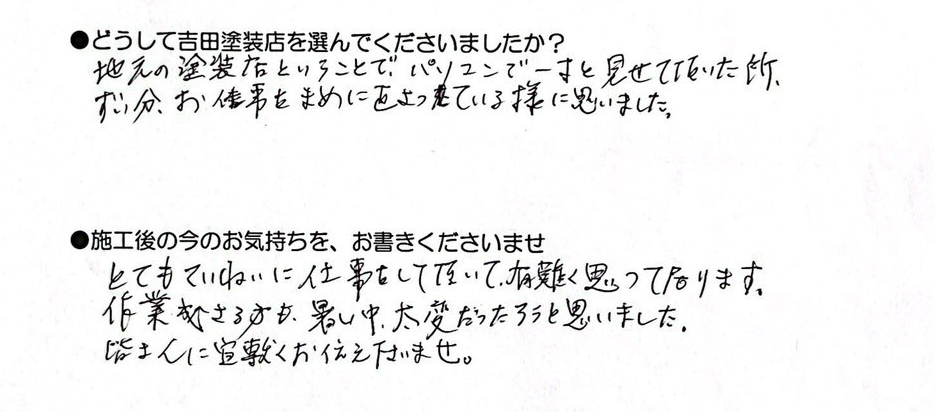 ●どうして吉田塗装店を選んでくださいましたか？
地元の塗装店ということで、パソコンで一寸と見せて頂いた所、
ずい分、お仕事をまめにやっている様に思いました。
●施工後の今のお気持ちを、お書きくださいませ
とてもていねいに仕事をして頂いて、有難く思って居ります。
作業なさる方も、暑い中、大変だったろうと思いました。
皆さんに宜敷くお伝え下さいませ。